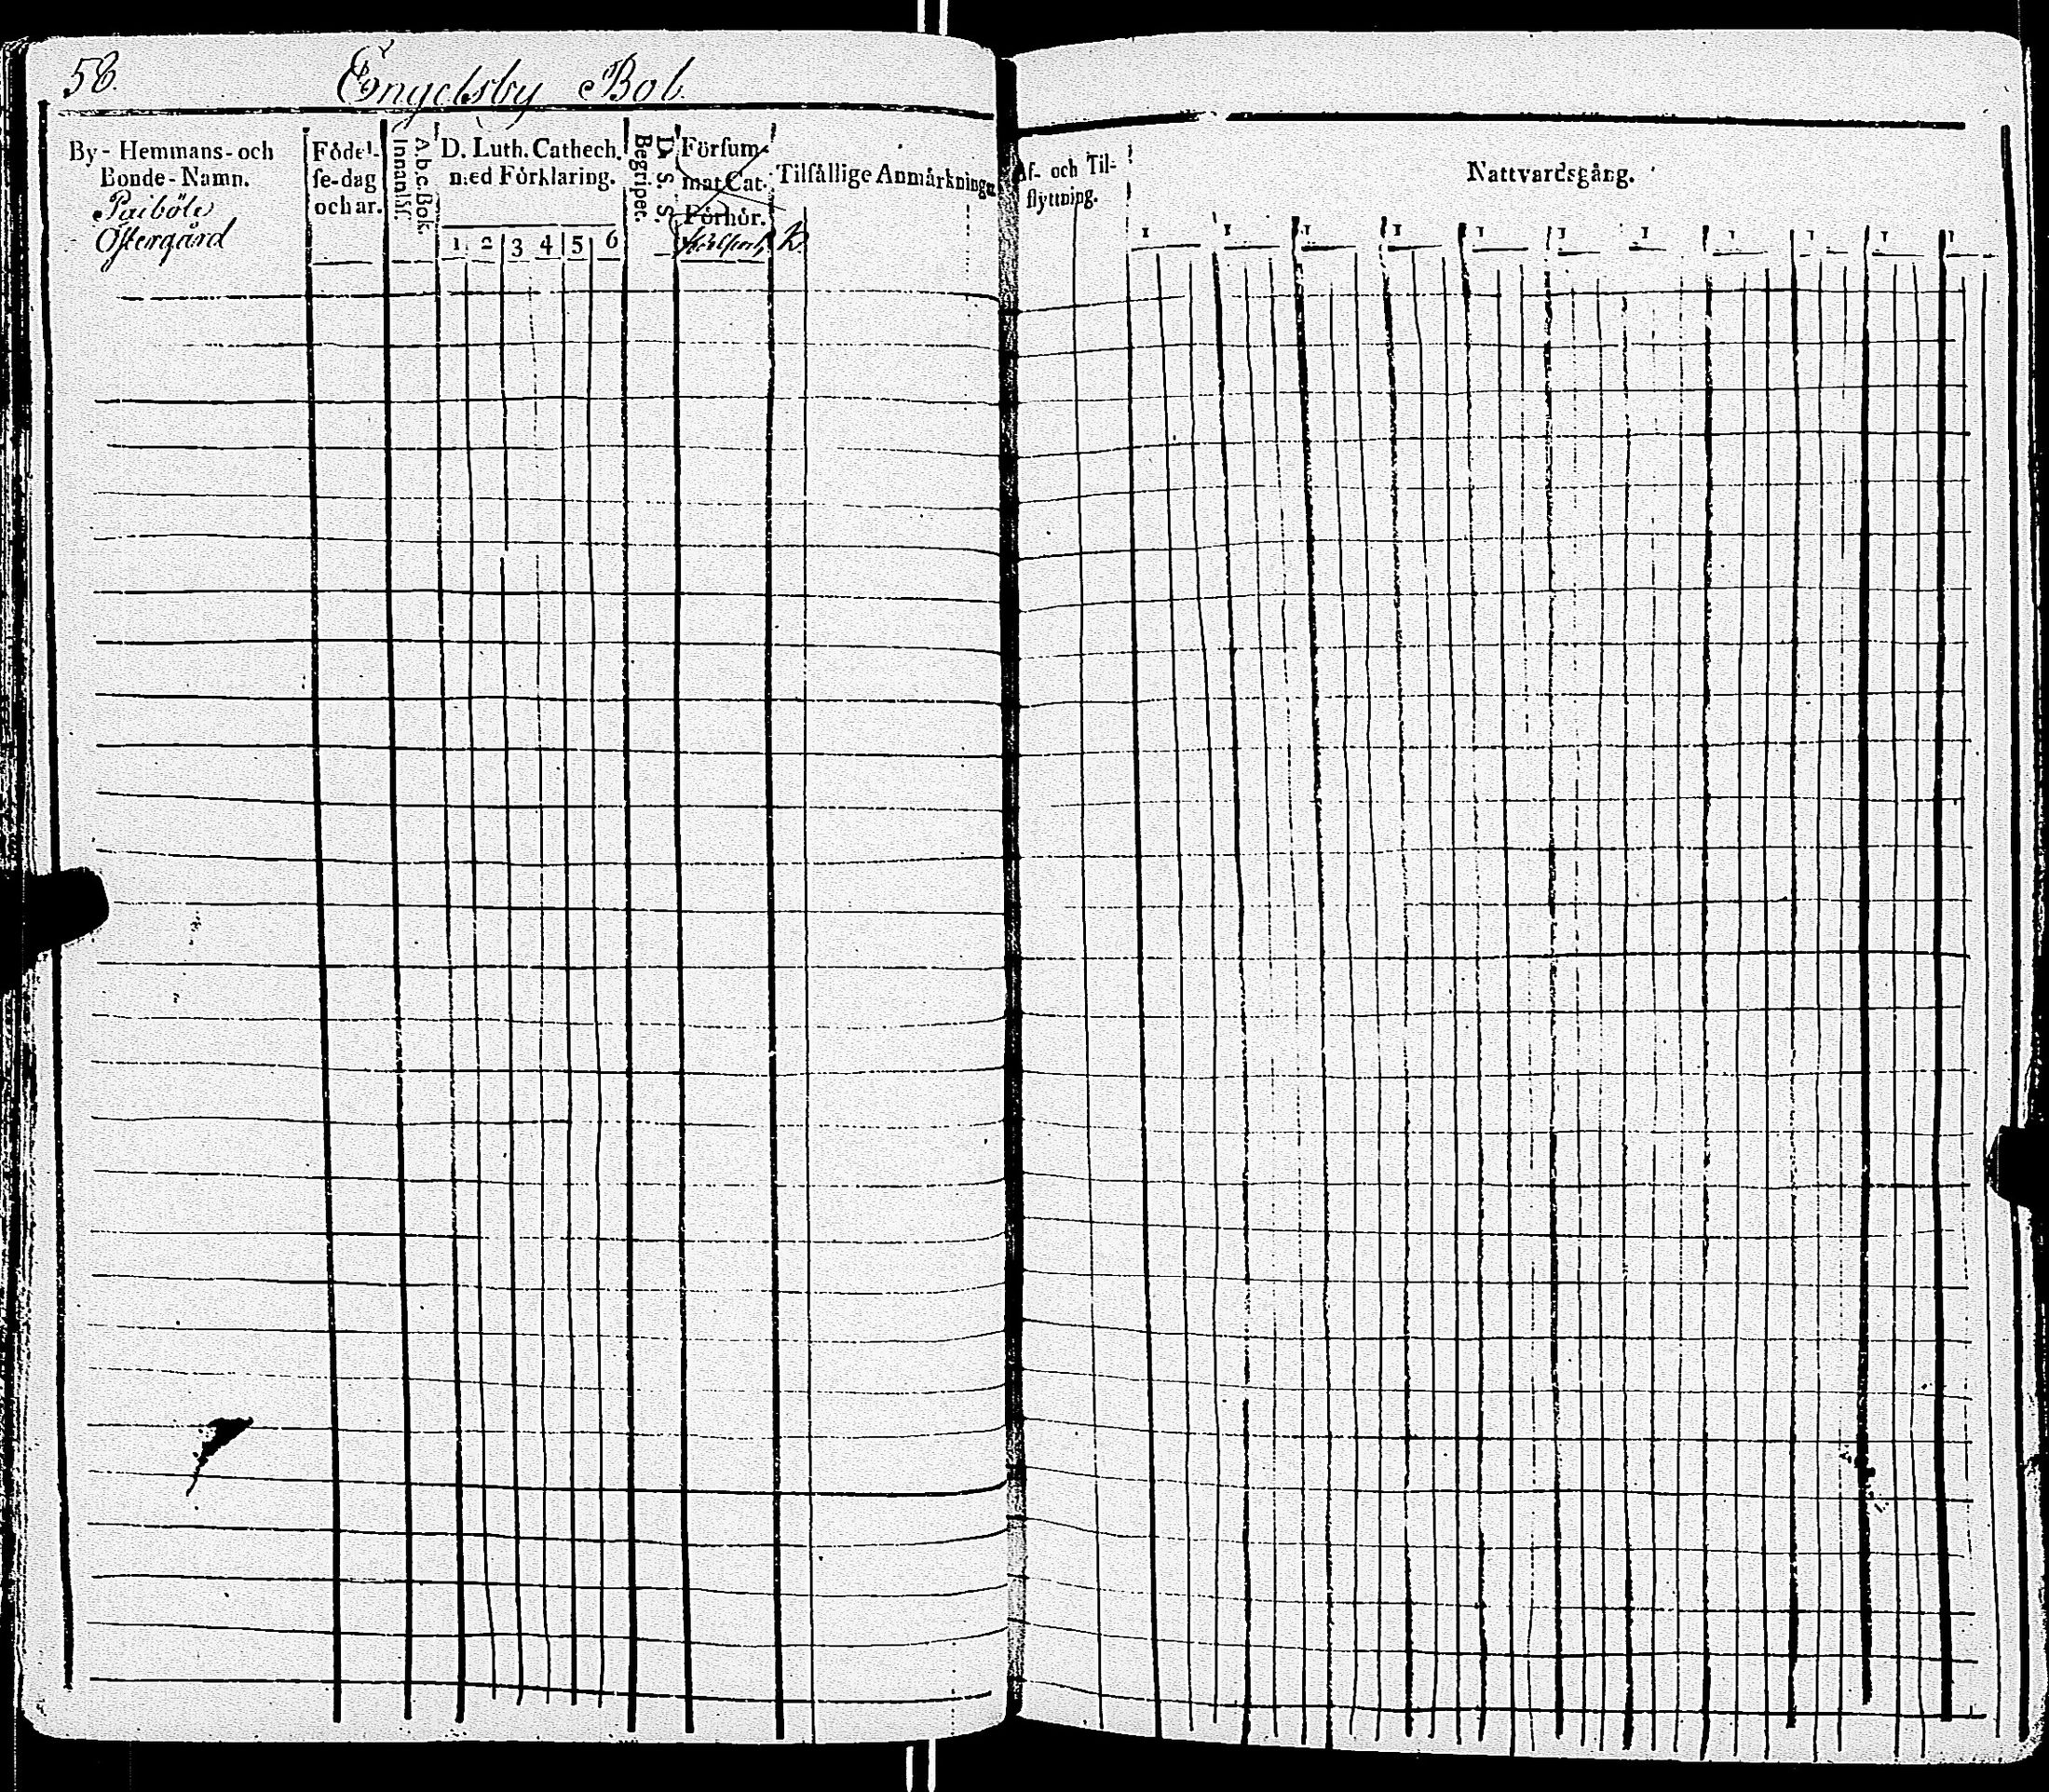 58.
Engelsby Bol
By- Hemmans- och
Bonde-Namn.
Paiböle
Östergård
Födel-
se-dag
och ar.
Innanläs.
A.b.c.Bok.
D. Luth. Cathech.
med Förklaring.
1 2 3 4 5 6
Begripet.
D. S. S.
Försum-
mat Cat.
Förhör.
Tilfällige Anmärkningar
Af- och Til-
flyttning.
Nattvardsgång.
1 1 1 1 1 1 1 1 1 1 1